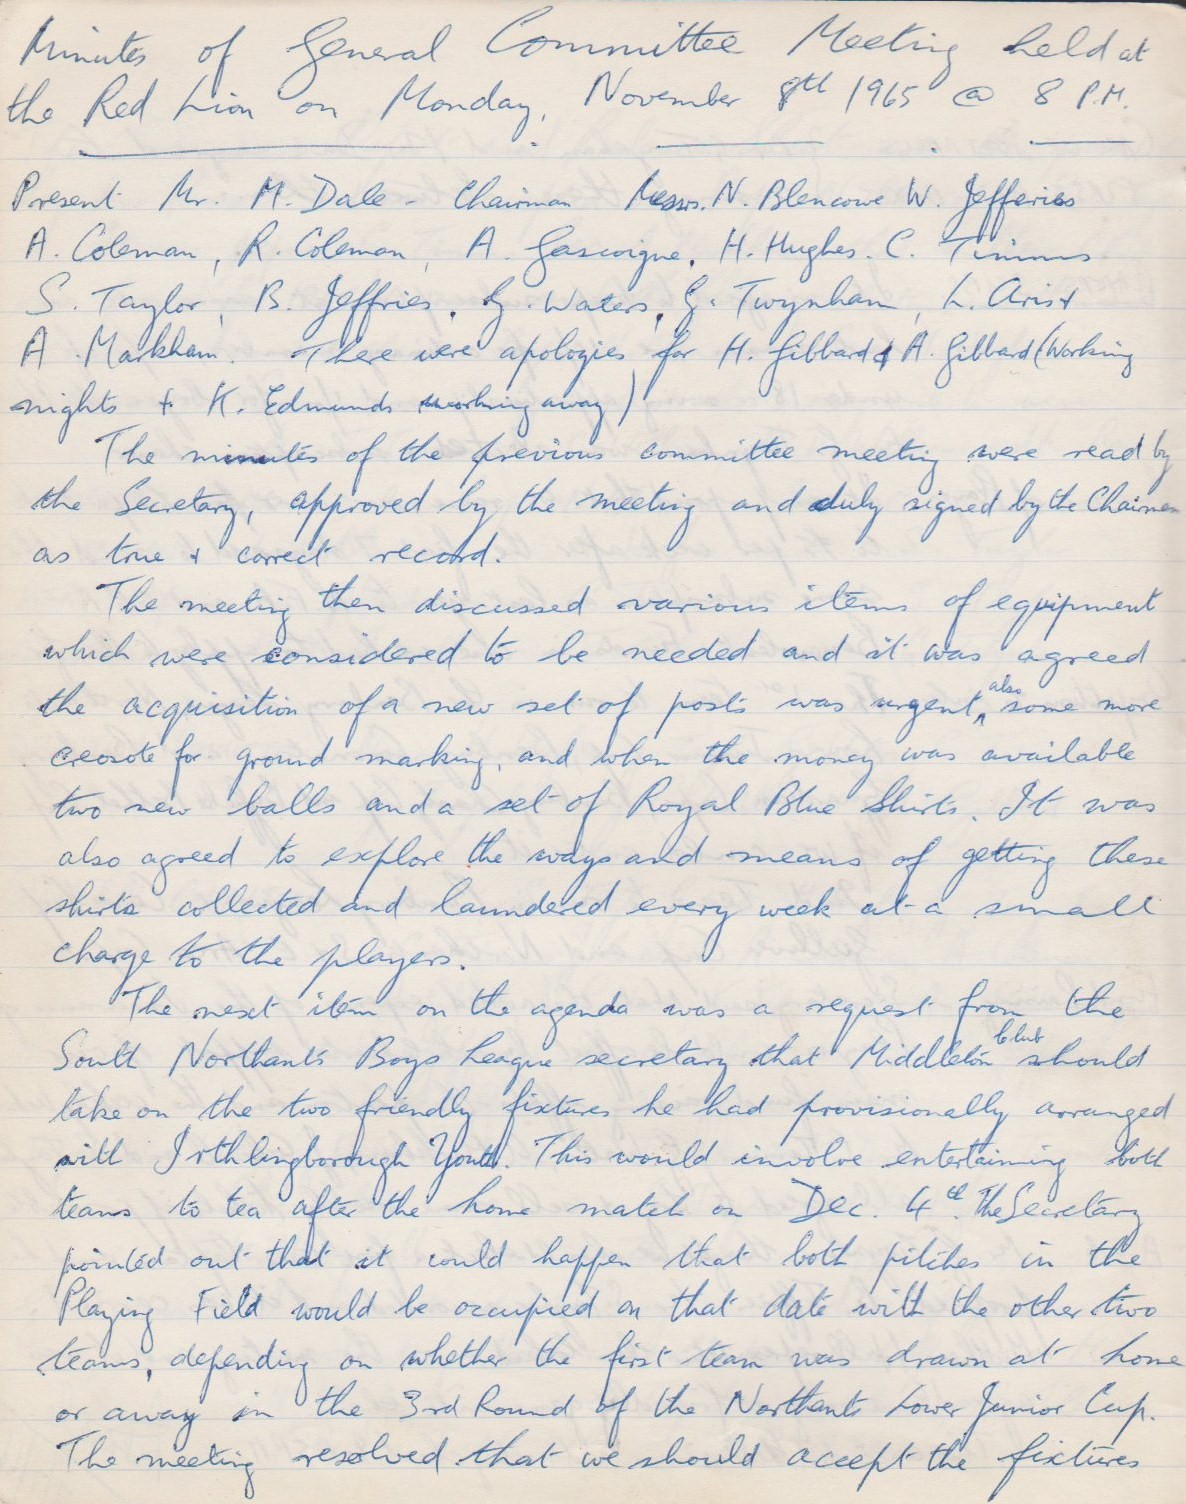 Minutes of General Committee Meeting held at
the Red Lion on Monday, November 8th 1965 @ 8 P.M.
Present Mr. M. Dale - Chairman Messrs. N. Blencowe W. Jefferies
A. Coleman, R. Coleman, A. Gascoigne, H. Hughes. C. Timms
S. Taylor, B. Jeffries, G. Waters, G. Twynham, L. Aris +
A. Markham. There were apologies for H. Gibbard & A. Gibbard (Working
nights + K. Edmunds working away)
The minutes of the previous committee meeting were read by
the Secretary, approved by the meeting and duly signed by the Chairman
as true + correct record.
The meeting then discussed various items of equipment
which were considered to be needed and it was agreed
the acquisition of a new set of posts was urgent, also some more
creosote for ground marking, and when the money was available
two new balls and a set of Royal Blue Shirts. It was
also agreed to explore the ways and means of getting these
shirts collected and laundered every week at a small
charge to the players.
The next item on the agenda was a request from the
South Northants Boys League secretary that Middleton Club should
take on the two friendly fixtures he had provisionally arranged
with Irthlingborough Youth. This would involve entertaining both
teams to tea after the home match on Dec. 4th. The Secretary
pointed out that it could happen that both pitches in the
Playing Field would be occupied on that date with the other two
teams, depending on whether the first team was drawn at home
or away in the 3rd Round of the Northants Lower Junior Cup.
The meeting resolved that we should accept the fixtures